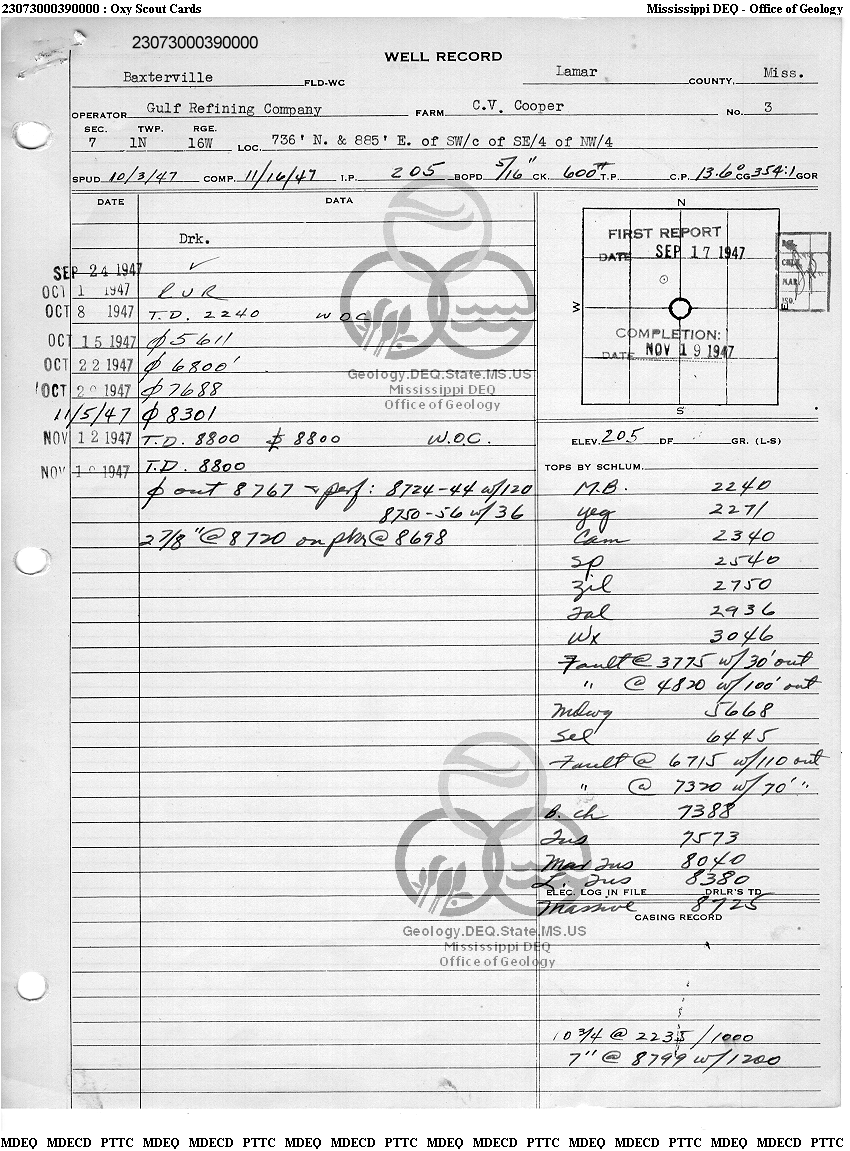 23073000390000 : Oxy Scout Cards Mississippi DEQ - Office of Geology
23073000390000
WELL RECORD
Baxterville FLD-WC Lamar COUNTY, Miss.
OPERATOR Gulf Refining Company FARM C.V. Cooper No. 3
SEC. TWP. RGE.
7 1N 16W LOC. 736' N. & 885' E. of SW/c of SE/4 of NW/4
SPUD 10/3/47 COMP. 11/16/47 I.P. 205 BOPD 5/16" CK. 600# T.P. C.P. 13.6° CG 354:1 GOR
DATE DATA
Drk.
SEP 24 1947 ✓
OCT 1 1947 RUR
OCT 8 1947 T.D. 2240 WOC
OCT 15 1947 ϕ 5611
OCT 22 1947 ϕ 6800'
OCT 1947 ϕ 7688
11/5/47 ϕ 8301
NOV 12 1947 T.D. 8800 8800 W.O.C.
NOV 1947 T.D. 8800
ϕ out 8767 perf: 8724-44 w/120
8750-56 w/36
2 7/8" @ 8720 on pkr @ 8698
N
W
E
S
FIRST REPORT
DATE SEP 17 1947
COMPLETION:
DATE NOV 19 1947
ELEV. 205 DF GR. (L-S)
TOPS BY SCHLUM.
M.B. 2240
Yeg 2271
Cam 2340
Sp 2540
Zil 2750
Tal 2936
Wx 3046
Fault @ 3775 w/30' out
" @ 4820 w/100' out
Mdwy 5668
Sel 6445
Fault @ 6715 w/110 out
" @ 7320 w/70' "
B. ch 7388
Tus 7573
Mar Tus 8040
L. Tus 8380
ELEC. LOG IN FILE DRLR'S TD
Massive 8725
CASING RECORD
10 3/4 @ 2235/1000
7" @ 8799 w/1200
Geology.DEQ.State.MS.US
Mississippi DEQ
Office of Geology
Geology.DEQ.State.MS.US
Mississippi DEQ
Office of Geology
MDEQ MDECD PTTC MDEQ MDECD PTTC MDEQ MDECD PTTC MDEQ MDECD PTTC MDEQ MDECD PTTC MDEQ MDECD PTTC